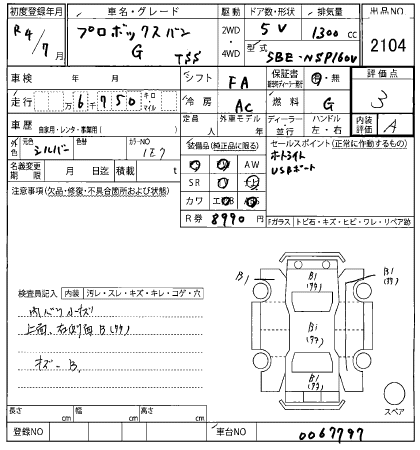 初度登録年月 車名・グレード 駆動 ドア数・形状 排気量 出品NO
R4/7月 プロボックスバン 2WD 5V 1300cc 2104
G TSS 4WD 型式 5BE-NSP160V
車検 年 月 シフト FA 保証書 有・無 評価点
走行 万6千750 キロ・マイル 冷房 AC 燃料 G 3
車歴 自家用・レンタ・事業用( ) 定員 人 外車モデル 年 ディーラー・並行 ハンドル 左・右 内装評価 A
外色 元色 シルバー 色替 カラーNO 1E7 装備品(純正品に限る) セールスポイント(正常に作動するもの)
名義変更期限 月 日迄 積載 t AW オートライト
SR USBポート
注意事項(欠品・修復・不具合箇所および状態) カワ
R券 8990円 Fガラス トビ石・キズ・ヒビ・ワレ・リペア跡
検査員記入 内装 汚レ・スレ・キズ・キレ・コゲ・穴
内バリ小キズ
上面、右ばり面B(アサ)
キズーB
B1 B1(アサ) B1(アサ)
B1(アサ)
B1(アサ)
スペア
長さ cm 幅 cm 高さ cm
登録NO 車台NO 0067797